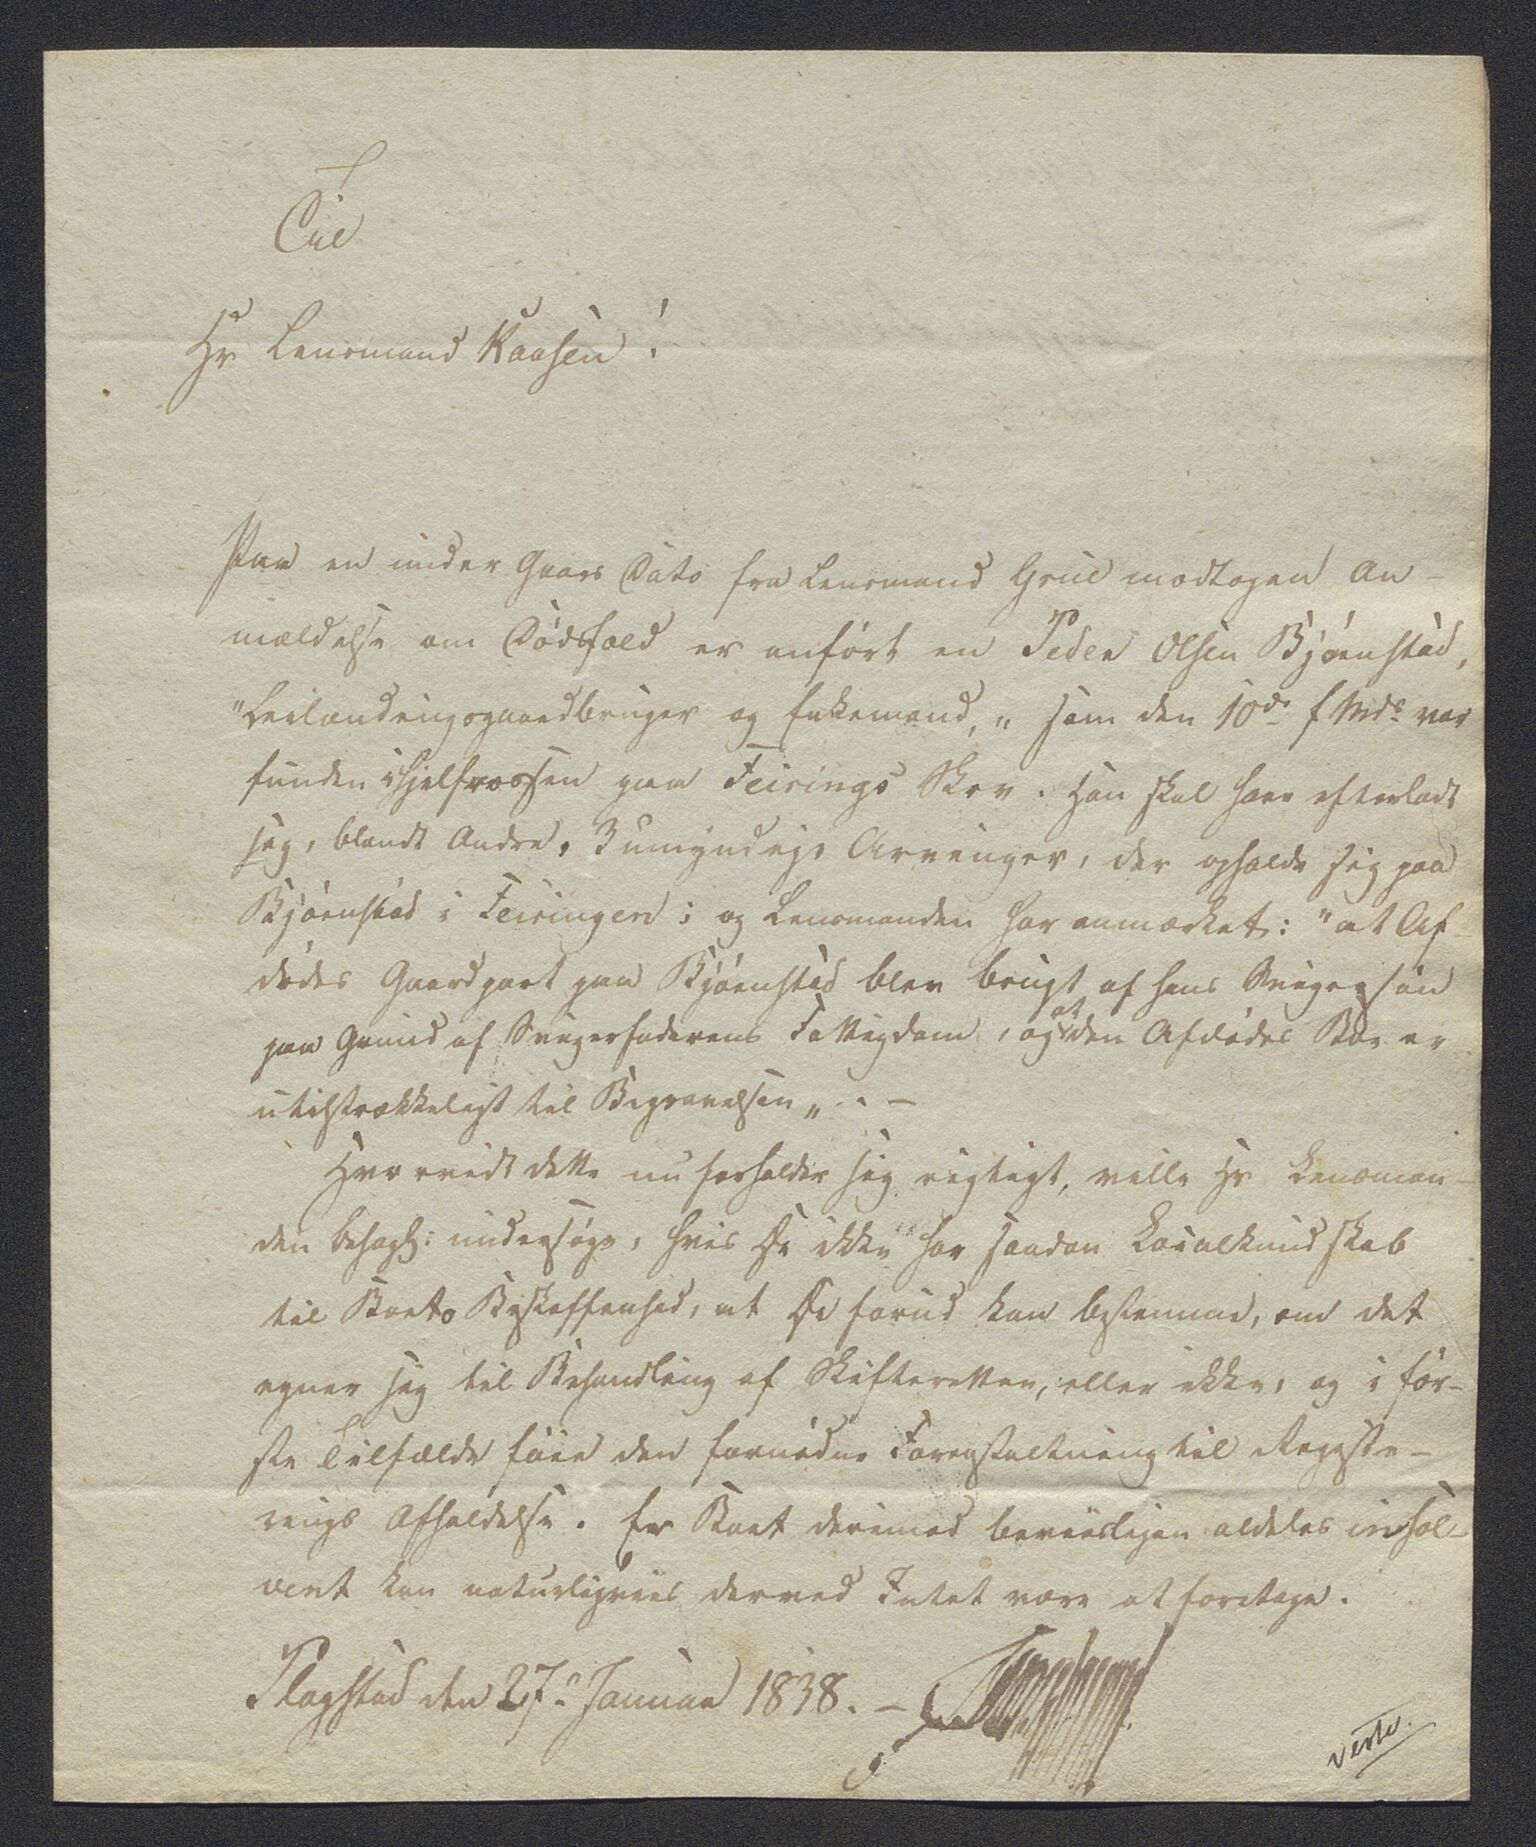 Til
Hr Lensmand Kaasen!
Paa en under Gaars Dato fra Lensmand Grue modtagen An-
meldelse om Dødsfald er anført en Peder Olsen Bjørnstad,
"Leilændingsgaardbruger og Enkemand," som den 10de f Mds var
funden ihjelfrossen paa Feirings Skov. Han skal have efterladt
sig, blandt Andre, 3 umyndige Arvinger, der opholde sig paa
Bjørnstad i Feiringen; og Lensmanden har anmærket: "at Af-
dødes Gaardpart paa Bjørnstad blev brugt af hans Svigersøn
paa Grund af Svigerfaderens Fattigdom, og at den Afdødes Boe er
utilstrækkeligt til Begravelsen". -
Hvorvidt dette nu forholder sig rigtigt, ville Hr Lensman-
den behagl: undersøge, hvis De ikke har saadan Localkundskab
til Boets Beskaffenhed, at De forud kan bestemme, om det
egner sig til Behandling af Skifteretten, eller ikke, og i før-
ste Tilfælde føie den fornødne Foranstaltning til Registe-
rings Afholdelse. Er Boet derimod beviisligen aldeles insol-
vent kan naturligviis derved Intet være at foretage.
Flagstad den 27. Januar 1838. -
verte.